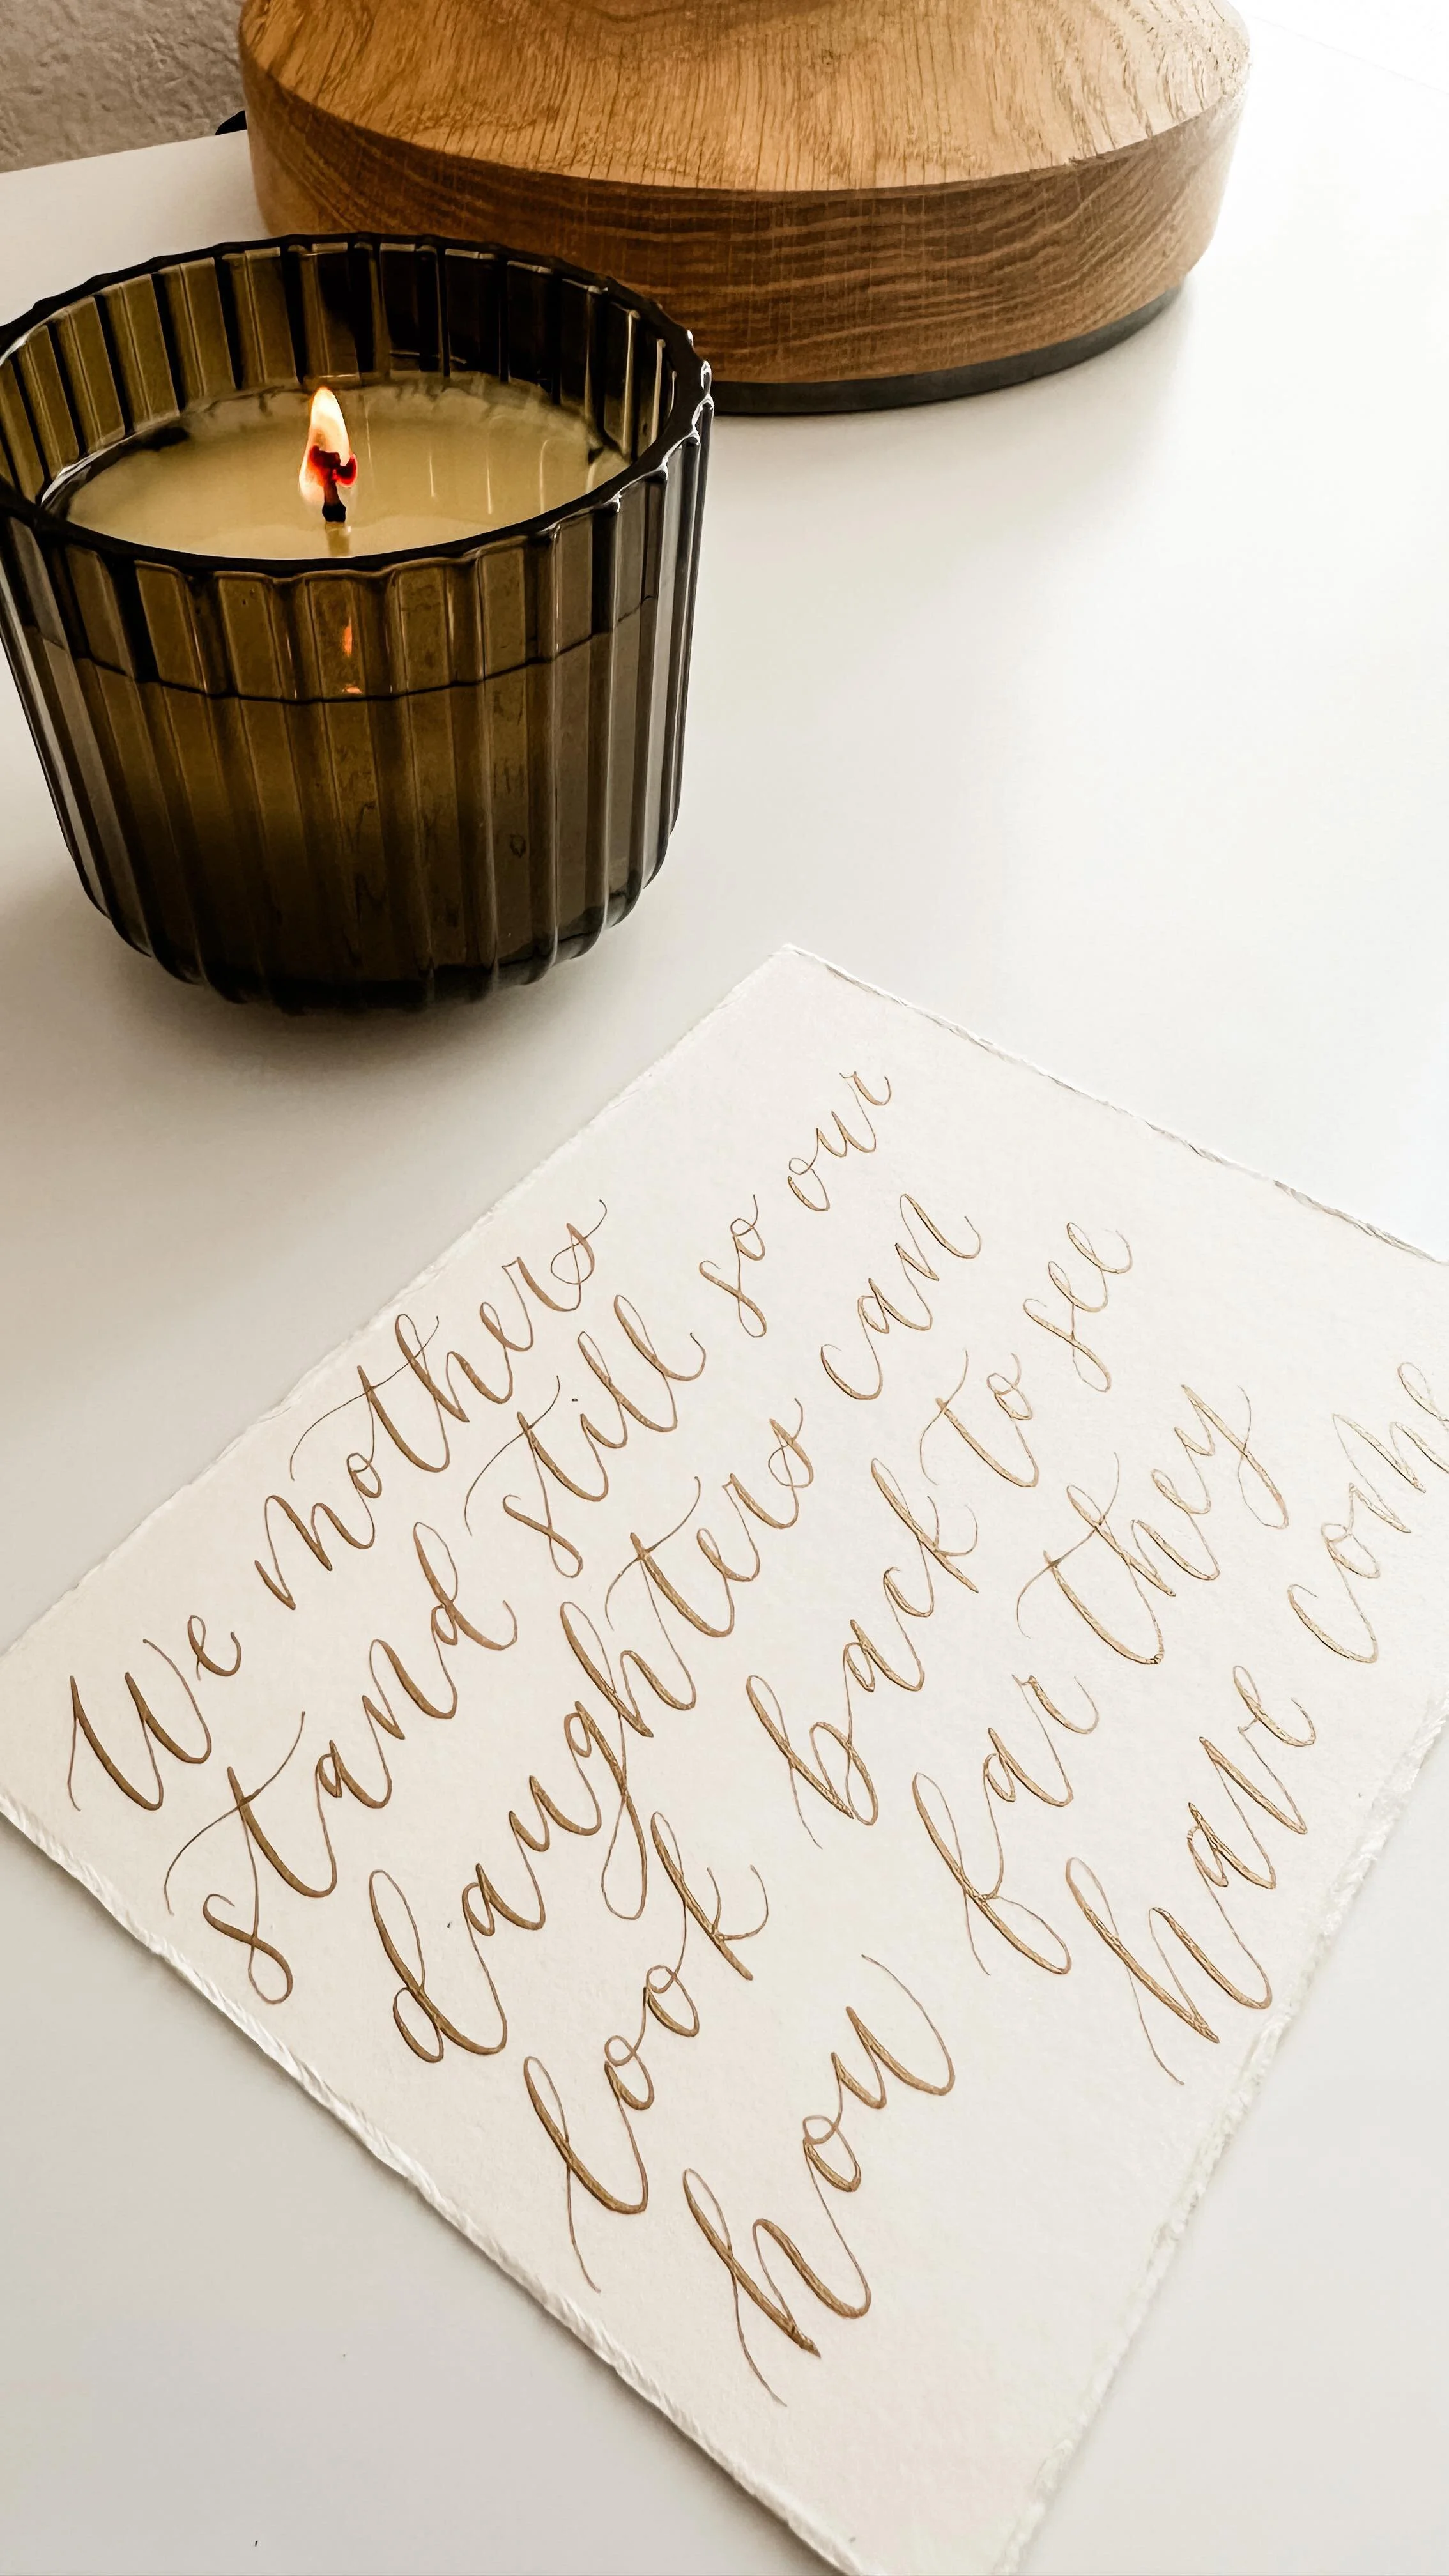 We mothers
stand still so our
daughters can
look back to see
how far they
have come